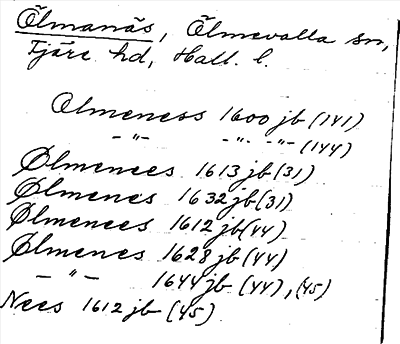 Ölmanäs, Ölmevalla sn,
Fjäre hd, Hall. l.
Ølmeness 1600 jb (141)
—"— —"— —"— (144)
Ølmenees 1613 jb (31)
Ølmenes 1632 jb (31)
Ølmenees 1612 jb (44)
Ølmenes 1628 jb (44)
—"— 1644 jb (44), (45)
Nees 1612 jb (45)